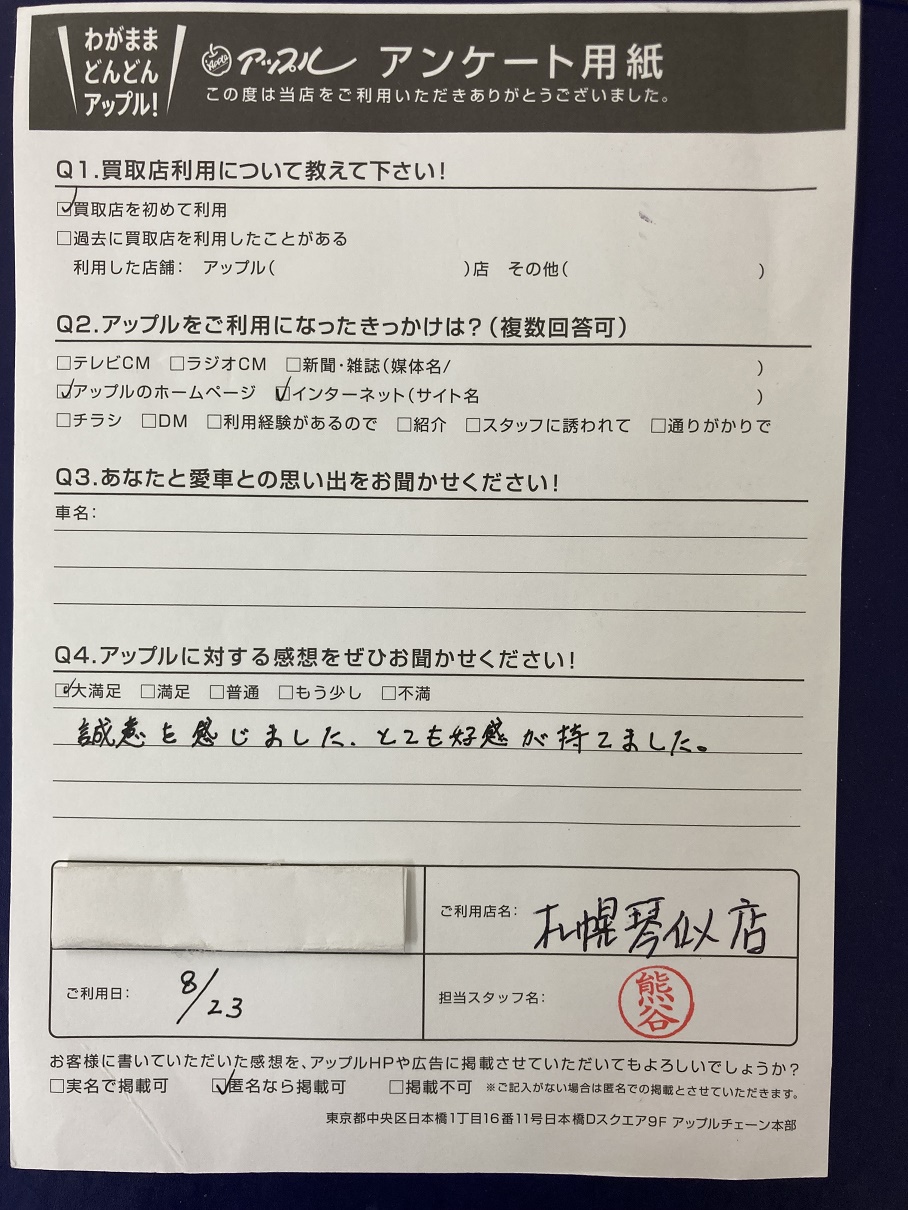 わがまま
どんどん
アップル!
Apple アップル アンケート用紙
この度は当店をご利用いただきありがとうございました。
Q1.買取店利用について教えて下さい!
☑買取店を初めて利用
□過去に買取店を利用したことがある
利用した店舗: アップル( )店 その他( )
Q2.アップルをご利用になったきっかけは?(複数回答可)
□テレビCM □ラジオCM □新聞・雑誌(媒体名/ )
☑アップルのホームページ ☑インターネット(サイト名 )
□チラシ □DM □利用経験があるので □紹介 □スタッフに誘われて □通りがかりで
Q3.あなたと愛車との思い出をお聞かせください!
車名:
Q4.アップルに対する感想をぜひお聞かせください!
☑大満足 □満足 □普通 □もう少し □不満
誠意を感じました、とても好感が持てました。
ご利用店名: 札幌琴似店
ご利用日: 8/23
担当スタッフ名: 熊谷
お客様に書いていただいた感想を、アップルHPや広告に掲載させていただいてもよろしいでしょうか?
□実名で掲載可 ☑匿名なら掲載可 □掲載不可 ※ご記入がない場合は匿名での掲載とさせていただきます。
東京都中央区日本橋1丁目16番11号日本橋Dスクエア9F アップルチェーン本部